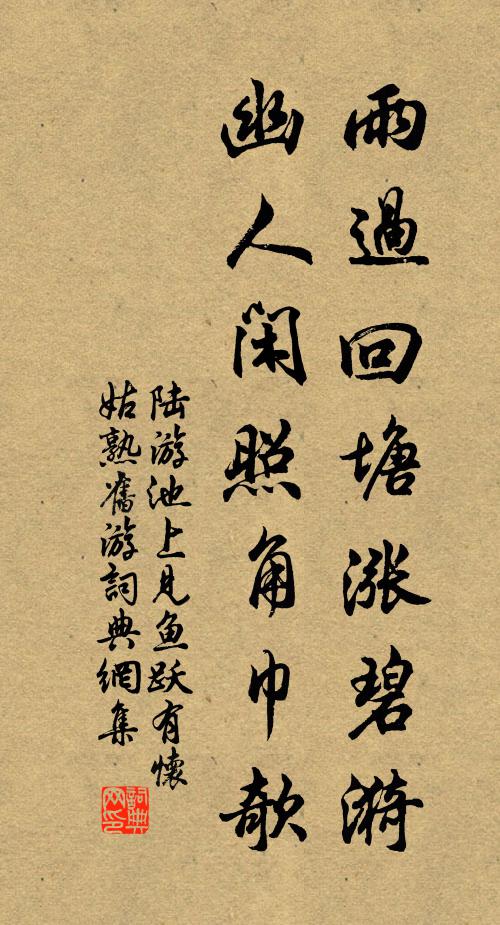 雨過回塘漲碧漪
幽人閑照角巾欹
陆游池上見鱼跃有懷
姑熟舊游詞典網集
詞典網印